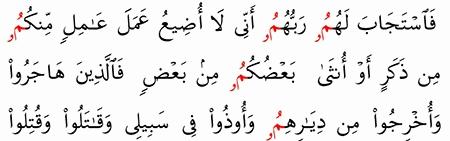 فَٱسْتَجَابَ لَهُمُۥ رَبُّهُمُۥ أَنِّى لَا أُضِيعُ عَمَلَ عَـٰمِلٖ مِّنكُمُۥ
مِن ذَكَرٍ أَوْ أُنثَىٰ بَعْضُكُمُۥ مِنۢ بَعْضٖ فَٱلَّذِينَ هَاجَرُوا۟
وَأُخْرِجُوا۟ مِن دِيَـٰرِهِمُۥ وَأُوذُوا۟ فِى سَبِيلِى وَقَـٰتَلُوا۟ وَقُتِلُوا۟